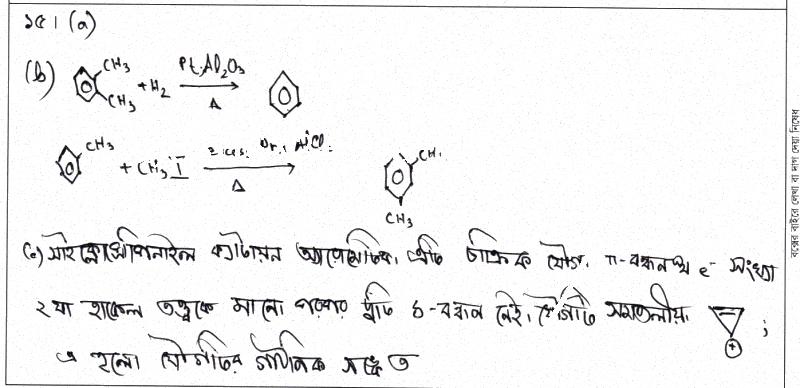 ১৫। (a)
(b) CH₃ CH₃ + H₂ Pt.Al₂O₃ Δ
CH₃ + CH₃I Δ CH₃ CH₃
(c) সাইক্লোপ্রোপিনাইল ক্যাটায়ন অ্যারোমেটিক। এটি চাক্রিক যৌগ। π-বন্ধনস্থ e⁻ সংখ্যা
২ যা হাকেল তত্ত্বকে মানে। δ-বন্ধন নেই। যৌগটি সমতলীয়। ⊕ ;
এ হলো যৌগটির গাঠনিক সঙ্কেত
বক্সের বাইরে লেখা বা দাগ দেয়া নিষেধ